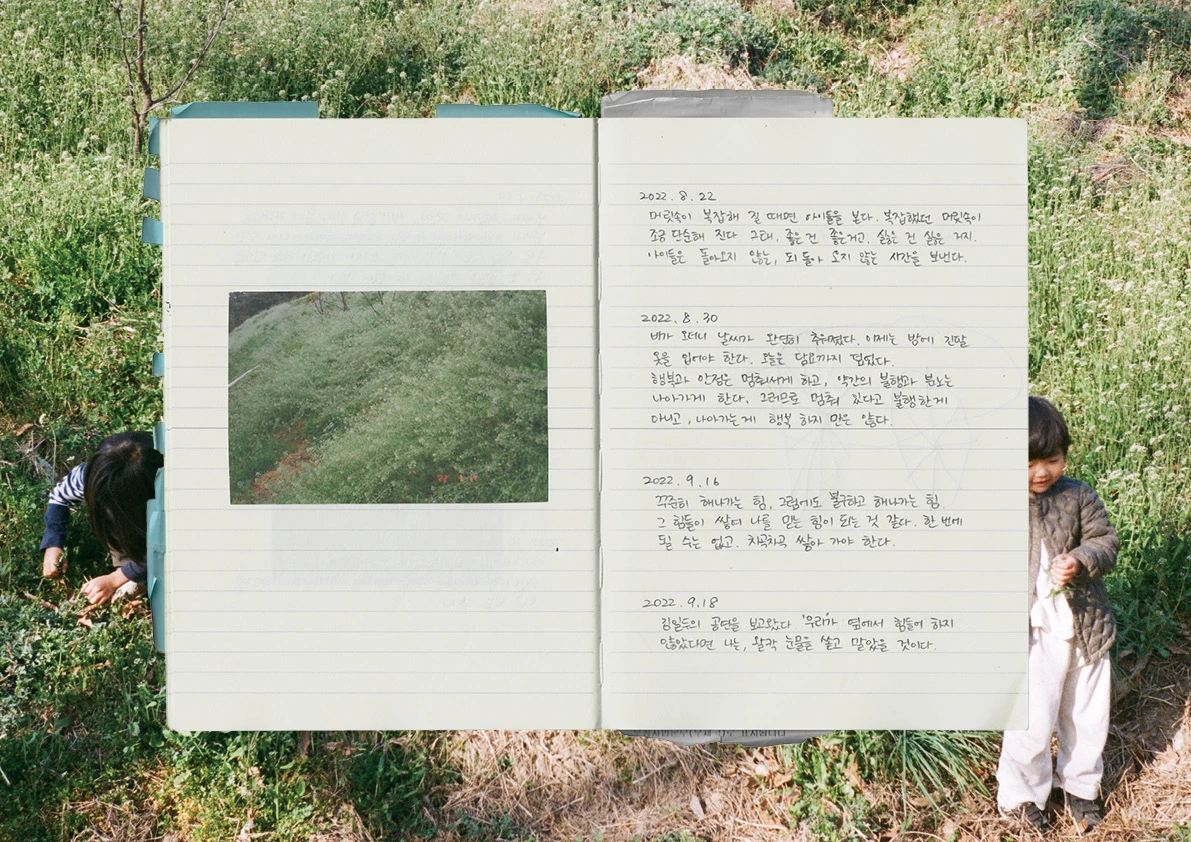 2022. 8. 22
머릿속이 복잡해 질 때면 아이들을 본다. 복잡했던 머릿속이
조금 단순해 진다 그래, 좋은 건 좋은거고, 싫은 건 싫은 거지.
아이들은 돌아오지 않는, 되돌아 오지 않는 시간을 보낸다.
2022. 8. 30
비가 오더니 날씨가 완연히 추워졌다. 이제는 밤에 긴팔
옷을 입어야 한다. 오늘은 담요까지 덮었다.
행복과 안정은 멈춰서게 하고, 약간의 불행과 분노는
나아가게 한다. 그러므로 멈춰 있다고 불행한게
아니고, 나아가는게 행복 하지 만은 않다.
2022. 9. 16
꾸준히 해나가는 힘, 그럼에도 불구하고 해나가는 힘.
그 힘들이 쌓여 나를 믿는 힘이 되는 것 같다. 한 번에
될 수는 없고. 차곡차곡 쌓아 가야 한다.
2022. 9. 18
김일두의 공연을 보고왔다 '우리'가 옆에서 힘들어 하지
않았다면 나는, 왈칵 눈물을 쏟고 말았을 것이다.